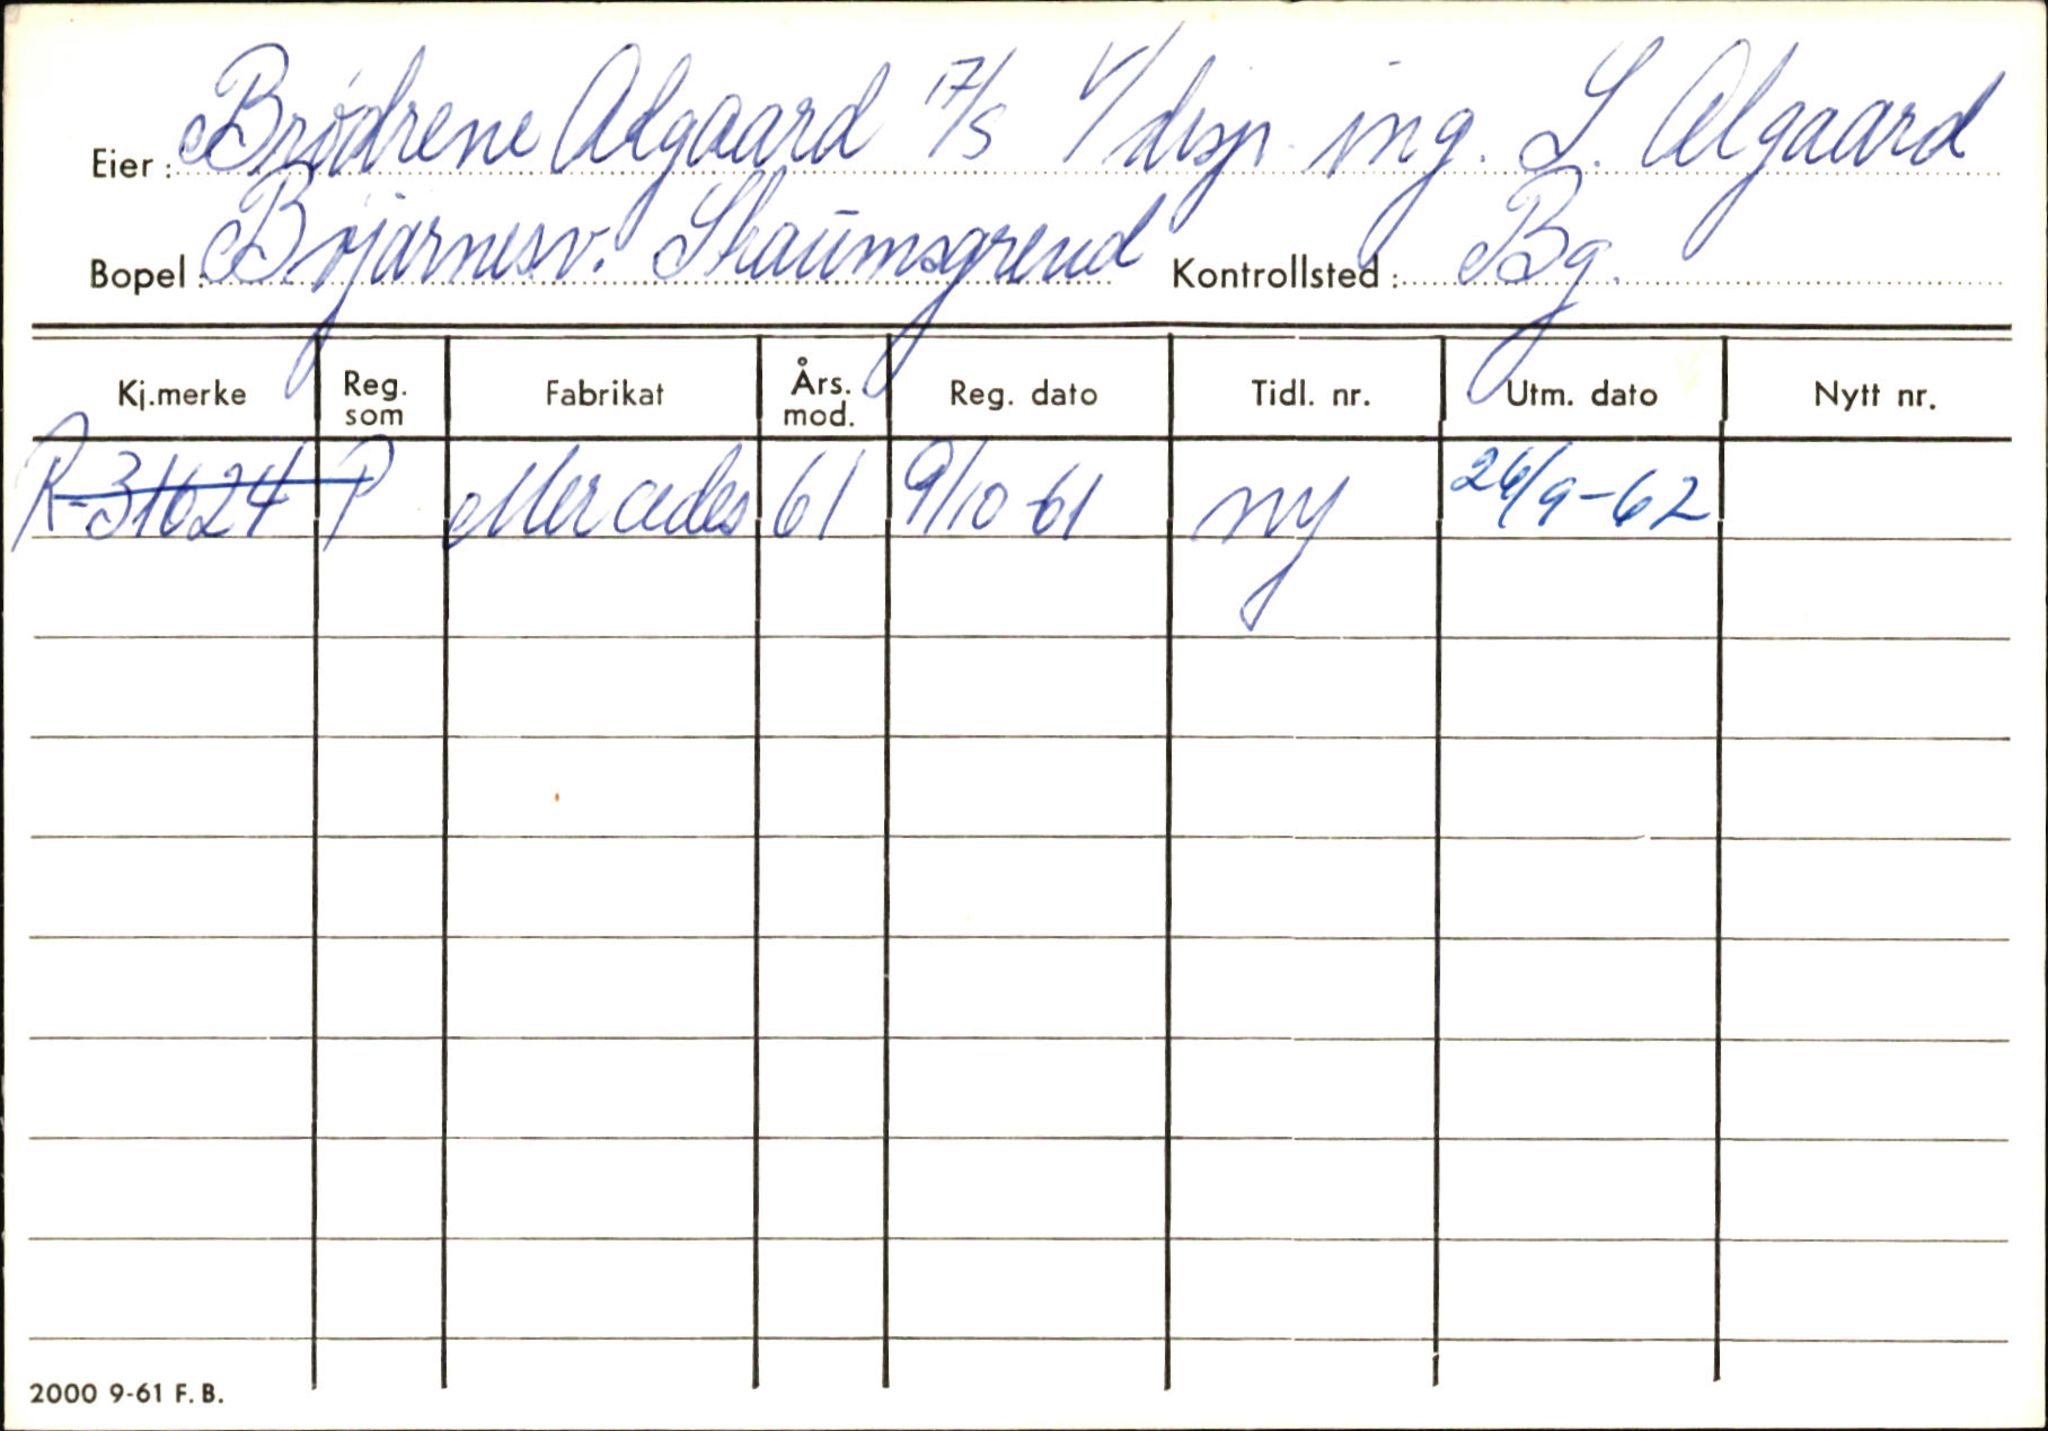 Eier: Brødrene Algaard A/S v/disp. ing. L. Algaard
Bopel: Bøjarnesv. Straumsgrend Kontrollsted: Bg.
Kj.merke Reg. som Fabrikat Års. mod. Reg. dato Tidl. nr. Utm. dato Nytt nr.
R-31624 P Mercedes 61 9/10-61 ny 26/9-62
2000 9-61 F.B.